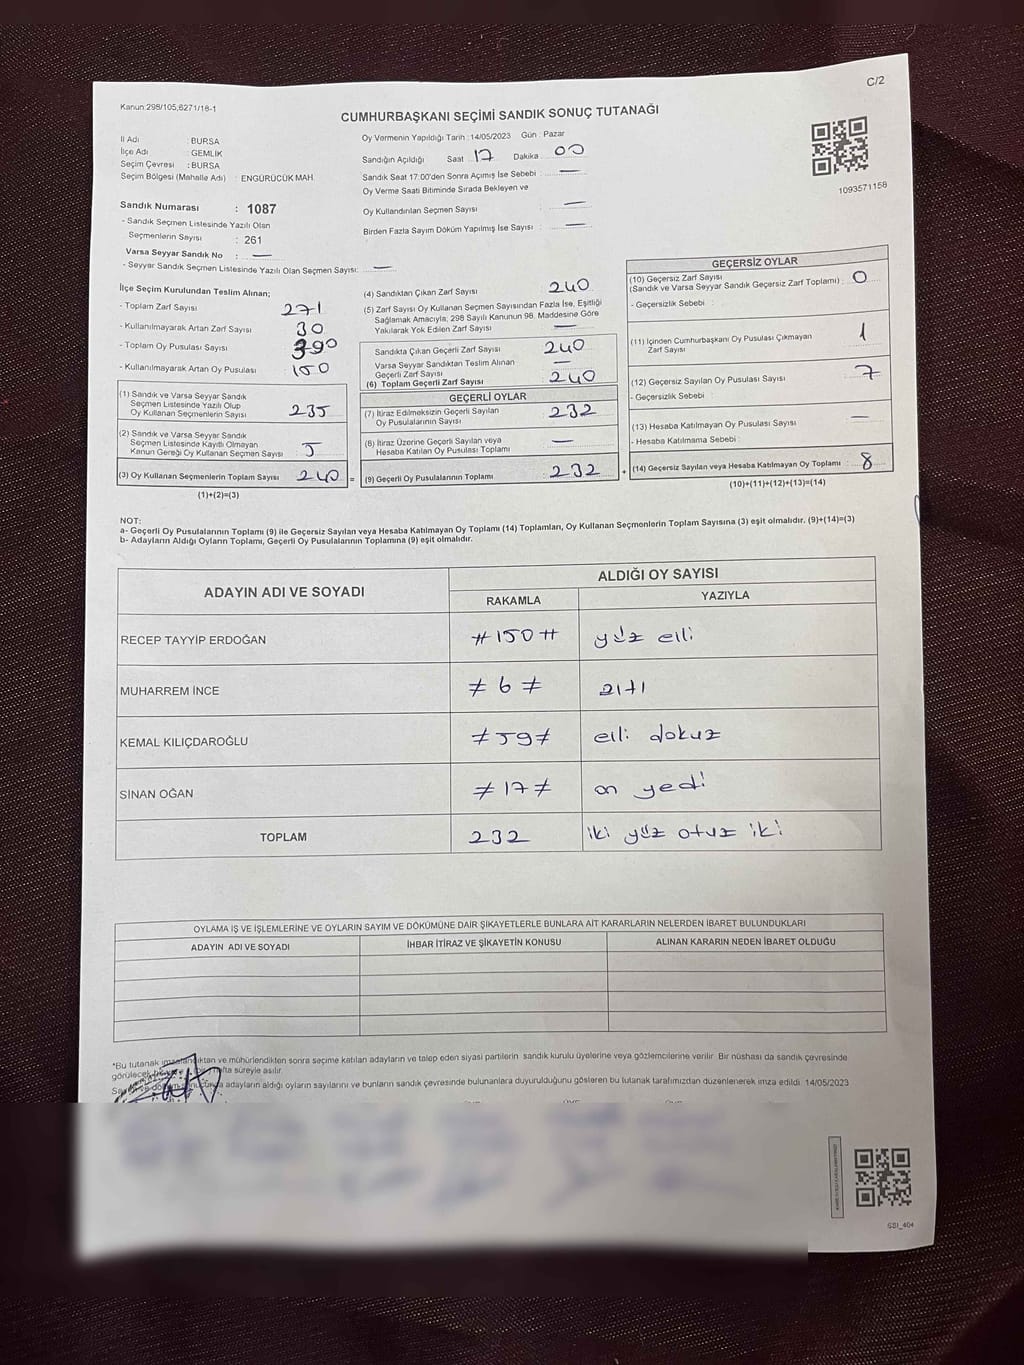 C/2
Kanun:298/105,6271/18-1
CUMHURBAŞKANI SEÇİMİ SANDIK SONUÇ TUTANAĞI
İl Adı : BURSA
İlçe Adı : GEMLİK
Seçim Çevresi : BURSA
Seçim Bölgesi (Mahalle Adı) : ENGÜRÜCÜK MAH.
Oy Vermenin Yapıldığı Tarih : 14/05/2023 Gün : Pazar
Sandığın Açıldığı Saat 17 Dakika 00
Sandık Saat 17:00'den Sonra Açımış İse Sebebi : —
Oy Verme Saati Bitiminde Sırada Bekleyen ve
Oy Kullandırılan Seçmen Sayısı : —
Birden Fazla Sayım Döküm Yapılmış İse Sayısı : —
1093571158
Sandık Numarası : 1087
- Sandık Seçmen Listesinde Yazılı Olan
Seçmenlerin Sayısı : 261
Varsa Seyyar Sandık No : —
- Seyyar Sandık Seçmen Listesinde Yazılı Olan Seçmen Sayısı: —
İlçe Seçim Kurulundan Teslim Alınan;
- Toplam Zarf Sayısı 271
- Kullanılmayarak Artan Zarf Sayısı 30
- Toplam Oy Pusulası Sayısı 390
- Kullanılmayarak Artan Oy Pusulası 150
(1) Sandık ve Varsa Seyyar Sandık
Seçmen Listesinde Yazılı Olup
Oy Kullanan Seçmenlerin Sayısı 235
(2) Sandık ve Varsa Seyyar Sandık
Seçmen Listesinde Kayıtlı Olmayan
Kanun Gereği Oy Kullanan Seçmen Sayısı 5
(3) Oy Kullanan Seçmenlerin Toplam Sayısı 240 =
(1)+(2)=(3)
(4) Sandıktan Çıkan Zarf Sayısı 240
(5) Zarf Sayısı Oy Kullanan Seçmen Sayısından Fazla İse, Eşitliği
Sağlamak Amacıyla, 298 Sayılı Kanunun 98. Maddesine Göre
Yakılarak Yok Edilen Zarf Sayısı —
Sandıkta Çıkan Geçerli Zarf Sayısı 240
Varsa Seyyar Sandıktan Teslim Alınan
Geçerli Zarf Sayısı —
(6) Toplam Geçerli Zarf Sayısı 240
GEÇERLİ OYLAR
(7) İtiraz Edilmeksizin Geçerli Sayılan
Oy Pusulalarının Sayısı 232
(8) İtiraz Üzerine Geçerli Sayılan veya
Hesaba Katılan Oy Pusulası Toplamı —
(9) Geçerli Oy Pusulalarının Toplamı 232 +
GEÇERSİZ OYLAR
(10) Geçersiz Zarf Sayısı
(Sandık ve Varsa Seyyar Sandık Geçersiz Zarf Toplamı) : 0
- Geçersizlik Sebebi :
(11) İçinden Cumhurbaşkanı Oy Pusulası Çıkmayan
Zarf Sayısı 1
(12) Geçersiz Sayılan Oy Pusulası Sayısı 7
- Geçersizlik Sebebi :
(13) Hesaba Katılmayan Oy Pusulası Sayısı —
- Hesaba Katılmama Sebebi :
(14) Geçersiz Sayılan veya Hesaba Katılmayan Oy Toplamı : 8
(10)+(11)+(12)+(13)=(14)
NOT:
a- Geçerli Oy Pusulalarının Toplamı (9) ile Geçersiz Sayılan veya Hesaba Katılmayan Oy Toplamı (14) Toplamları, Oy Kullanan Seçmenlerin Toplam Sayısına (3) eşit olmalıdır. (9)+(14)=(3)
b- Adayların Aldığı Oyların Toplamı, Geçerli Oy Pusulalarının Toplamına (9) eşit olmalıdır.
ADAYIN ADI VE SOYADI
ALDIĞI OY SAYISI
RAKAMLA YAZIYLA
RECEP TAYYİP ERDOĞAN #150# yüz elli
MUHARREM İNCE ≠6≠ altı
KEMAL KILIÇDAROĞLU ≠59≠ elli dokuz
SİNAN OĞAN ≠17≠ on yedi
TOPLAM 232 iki yüz otuz iki
OYLAMA İŞ VE İŞLEMLERİNE VE OYLARIN SAYIM VE DÖKÜMÜNE DAİR ŞİKAYETLERLE BUNLARA AİT KARARLARIN NELERDEN İBARET BULUNDUKLARI
ADAYIN ADI VE SOYADI İHBAR İTİRAZ VE ŞİKAYETİN KONUSU ALINAN KARARIN NEDEN İBARET OLDUĞU
*Bu tutanak ve mühürlendikten sonra seçime katılan adayların ve talep eden siyasi partilerin sandık kurulu üyelerine veya gözlemcilerine verilir. Bir nüshası da sandık çevresinde
görülecek süreyle asılır.
adayların aldığı oyların sayılarını ve bunların sandık çevresinde bulunanlara duyurulduğunu gösteren bu tutanak tarafımızdan düzenlenerek imza edildi. 14/05/2023
SSI_404